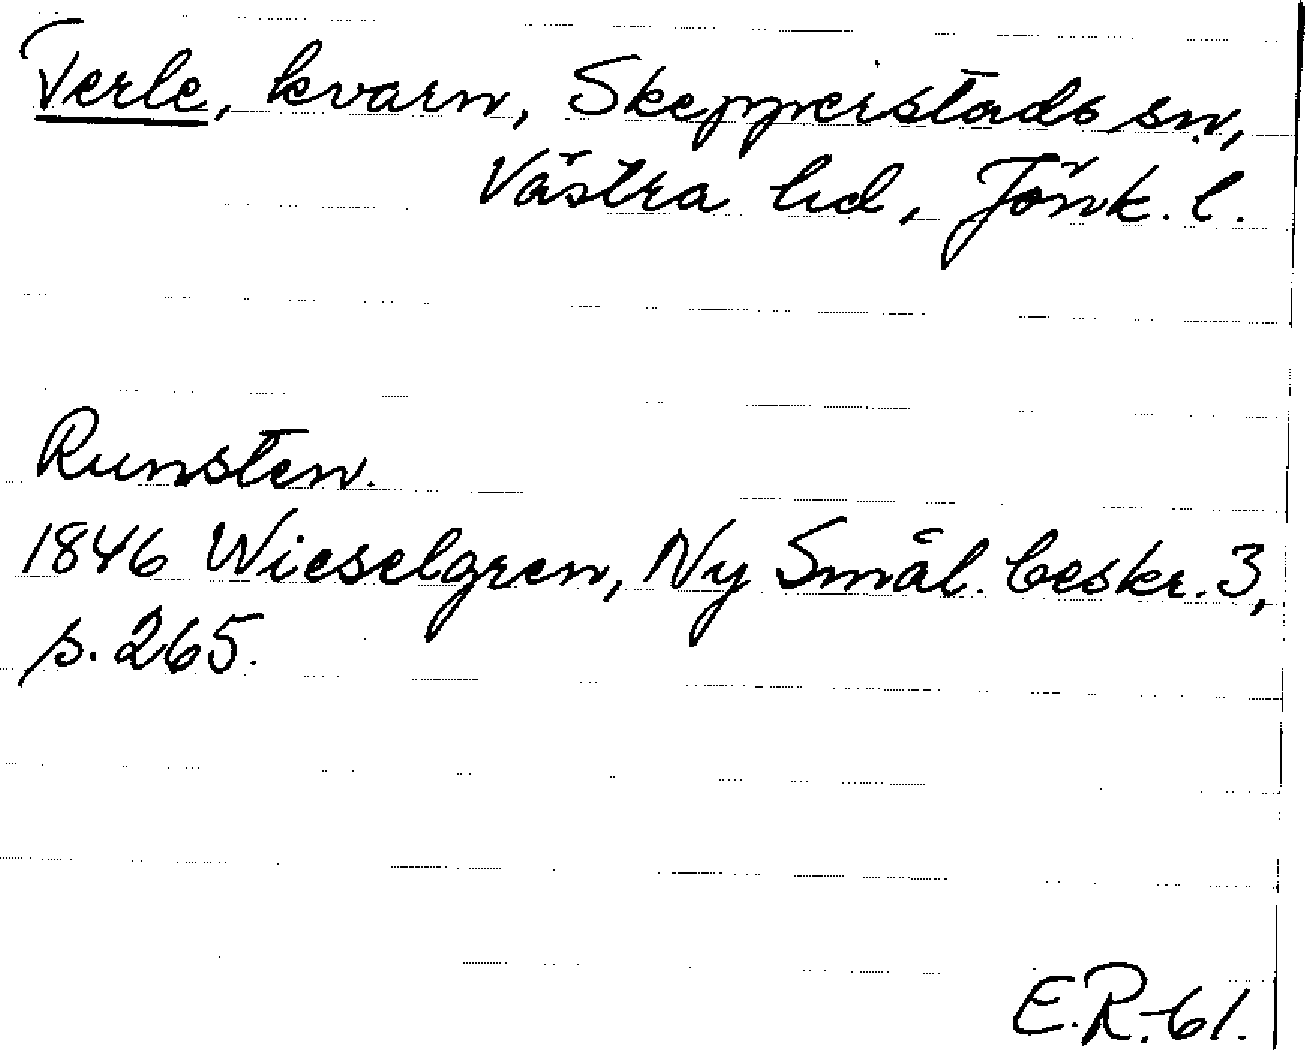 Terle, kvarn, Skepperstads sn,
Västra hd, Jönk. l.
Runsten.
1846 Wieselgren, Ny Smål. beskr. 3,
s. 265.
E.R.-61.